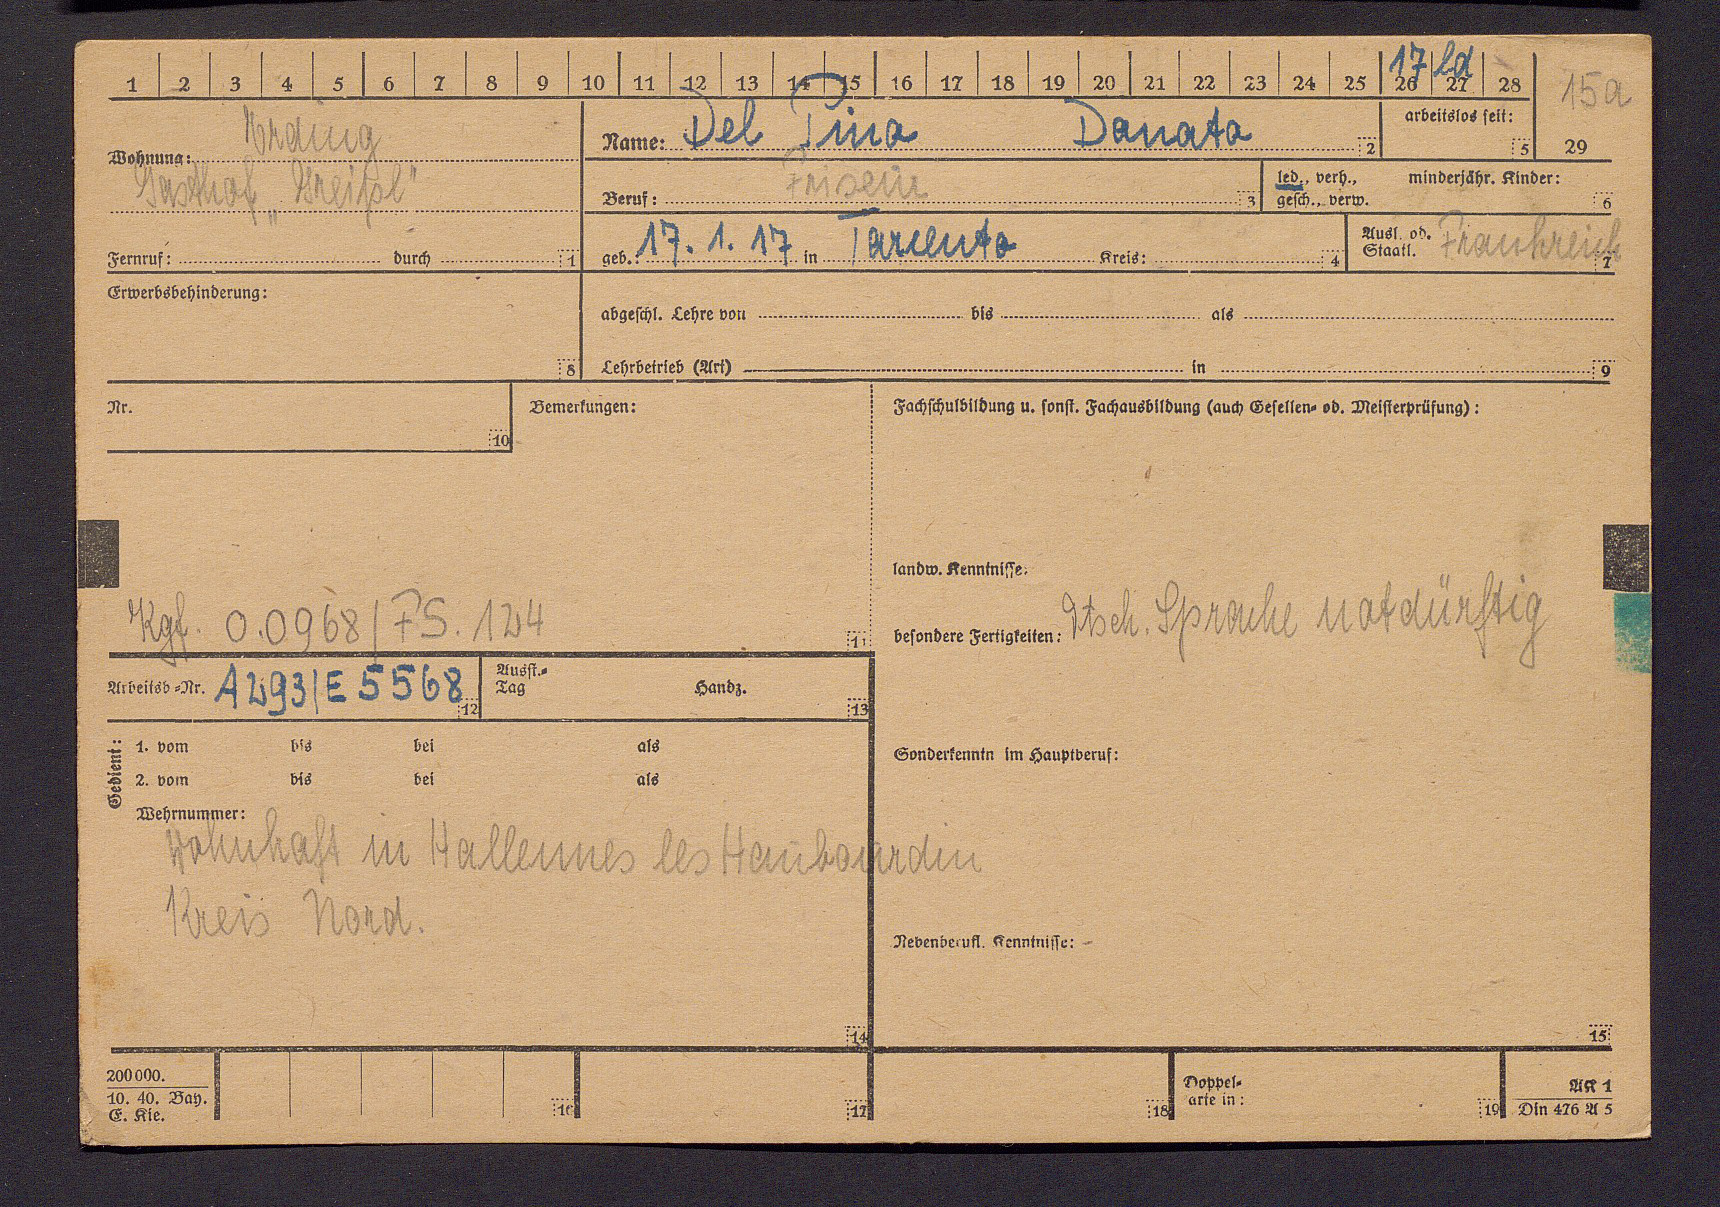 1 2 3 4 5 6 7 8 9 10 11 12 13 14 15 16 17 18 19 20 21 22 23 24 25 26 27 28
17 ld
15a
29
Wohnung: Erding
Gasthof „Greißl"
Fernruf: durch 1
Name: Del Pino Donato 2
arbeitslos seit: 5
Beruf: Friseur 3
led., verh., gesch., verw.
minderjähr. Kinder: 6
geb.: 17. 1. 17 in Tarcento Kreis: 4
Ausl. od. Staatl. Frankreich 7
Erwerbsbehinderung: 8
abgeschl. Lehre von bis als
Lehrbetrieb (Art) in 9
Nr. 10
Bemerkungen:
Kgf. 0.0968/FS. 124
11
Fachschulbildung u. sonst. Fachausbildung (auch Gesellen- od. Meisterprüfung):
landw. Kenntnisse:
besondere Fertigkeiten: dtsch. Sprache notdürftig
Sonderkenntn im Hauptberuf:
Nebenberufl. Kenntnisse: -
15
Arbeitsb-Nr. A293/E 5568 12
Ausst.-Tag Handz. 13
Gedient:
1. vom bis bei als
2. vom bis bei als
Wehrnummer:
Wohnhaft in Hallennes les Haubourdin
Kreis Nord.
14
200000.
10. 40. Bay.
E. Kie.
16 17 18
Doppel-
arte in: 19
AK 1
Din 476 A 5